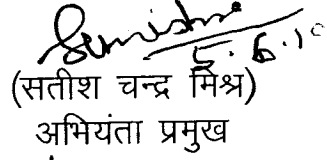 5.6.10
(सतीश चन्द्र मिश्र)
अभियंता प्रमुख